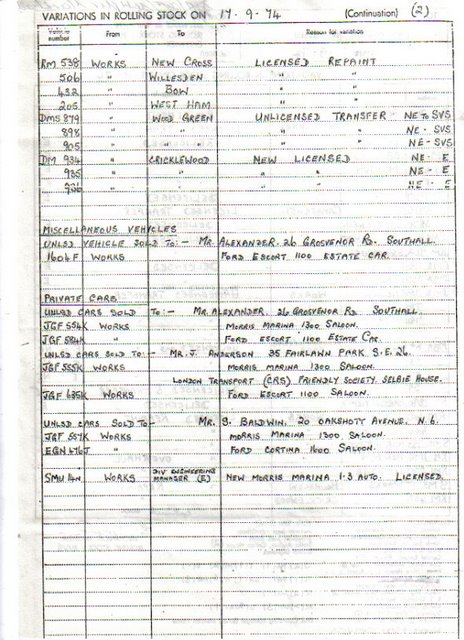 VARIATIONS IN ROLLING STOCK ON 17.9.74 (Continuation) (2)
Vehicle number From To Reason for variation
RM 538 WORKS NEW CROSS LICENSED REPAINT
506 " WILLESDEN " "
432 " BOW " "
205 " WEST HAM " "
DMS 879 " WOOD GREEN UNLICENSED TRANSFER NE TO SVS
898 " " " " NE - SVS
905 " " " " NE - SVS
DM 934 " CRICKLEWOOD NEW LICENSED NE - E
935 " " " " NE - E
936 " " " " NE - E
MISCELLANEOUS VEHICLES
UNLSD VEHICLE SOLD TO:- MR. ALEXANDER. 26 GROSVENOR RD. SOUTHALL.
1604F WORKS FORD ESCORT 1100 ESTATE CAR.
PRIVATE CARS
UNLSD CARS SOLD TO:- MR. ALEXANDER. 26 GROSVENOR RD. SOUTHALL
JGF 554K WORKS MORRIS MARINA 1300 SALOON.
JGF 584K " FORD ESCORT 1100 ESTATE CAR.
UNLSD CARS SOLD TO:- MR. J. ANDERSON 35 FAIRLAWN PARK S.E.26.
JGF 555K WORKS MORRIS MARINA 1300 SALOON.
LONDON TRANSPORT (CRS) FRIENDLY SOCIETY SELBIE HOUSE.
JGF 635K WORKS FORD ESCORT 1100 SALOON.
UNLSD CARS SOLD TO- MR. S. BALDWIN. 20 OAKSHOTT AVENUE. N.6.
JGF 557K WORKS MORRIS MARINA 1300 SALOON.
EGN 676J " FORD CORTINA 1600 SALOON.
SMU 4N WORKS DIV ENGINEERING MANAGER (E) NEW MORRIS MARINA 1.3 AUTO. LICENSED.